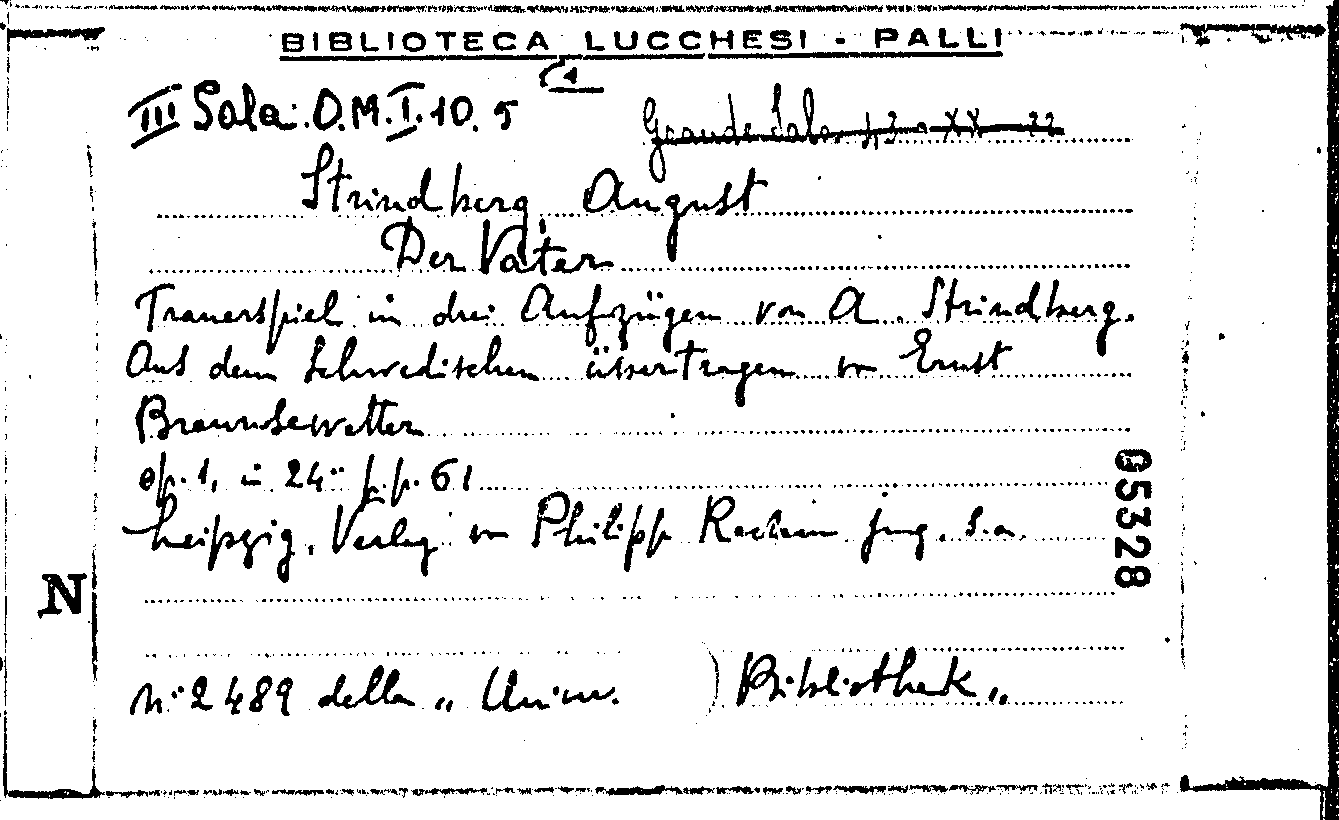 BIBLIOTECA LUCCHESI - PALLI
III Sala: O.M.I.10.5 (1
Grande Sala 43-XX-22
Strindberg, August
Der Vater
Trauerspiel in drei Aufzügen von A. Strindberg.
Aus dem Schwedischen übertragen von Ernst
Brausewetter
op. 1, in 24° p.p. 61
Leipzig, Verlag von Philipp Reclam jung. s.a.
05328
N
N° 2489 della „ Univ. ) Bibliothek „